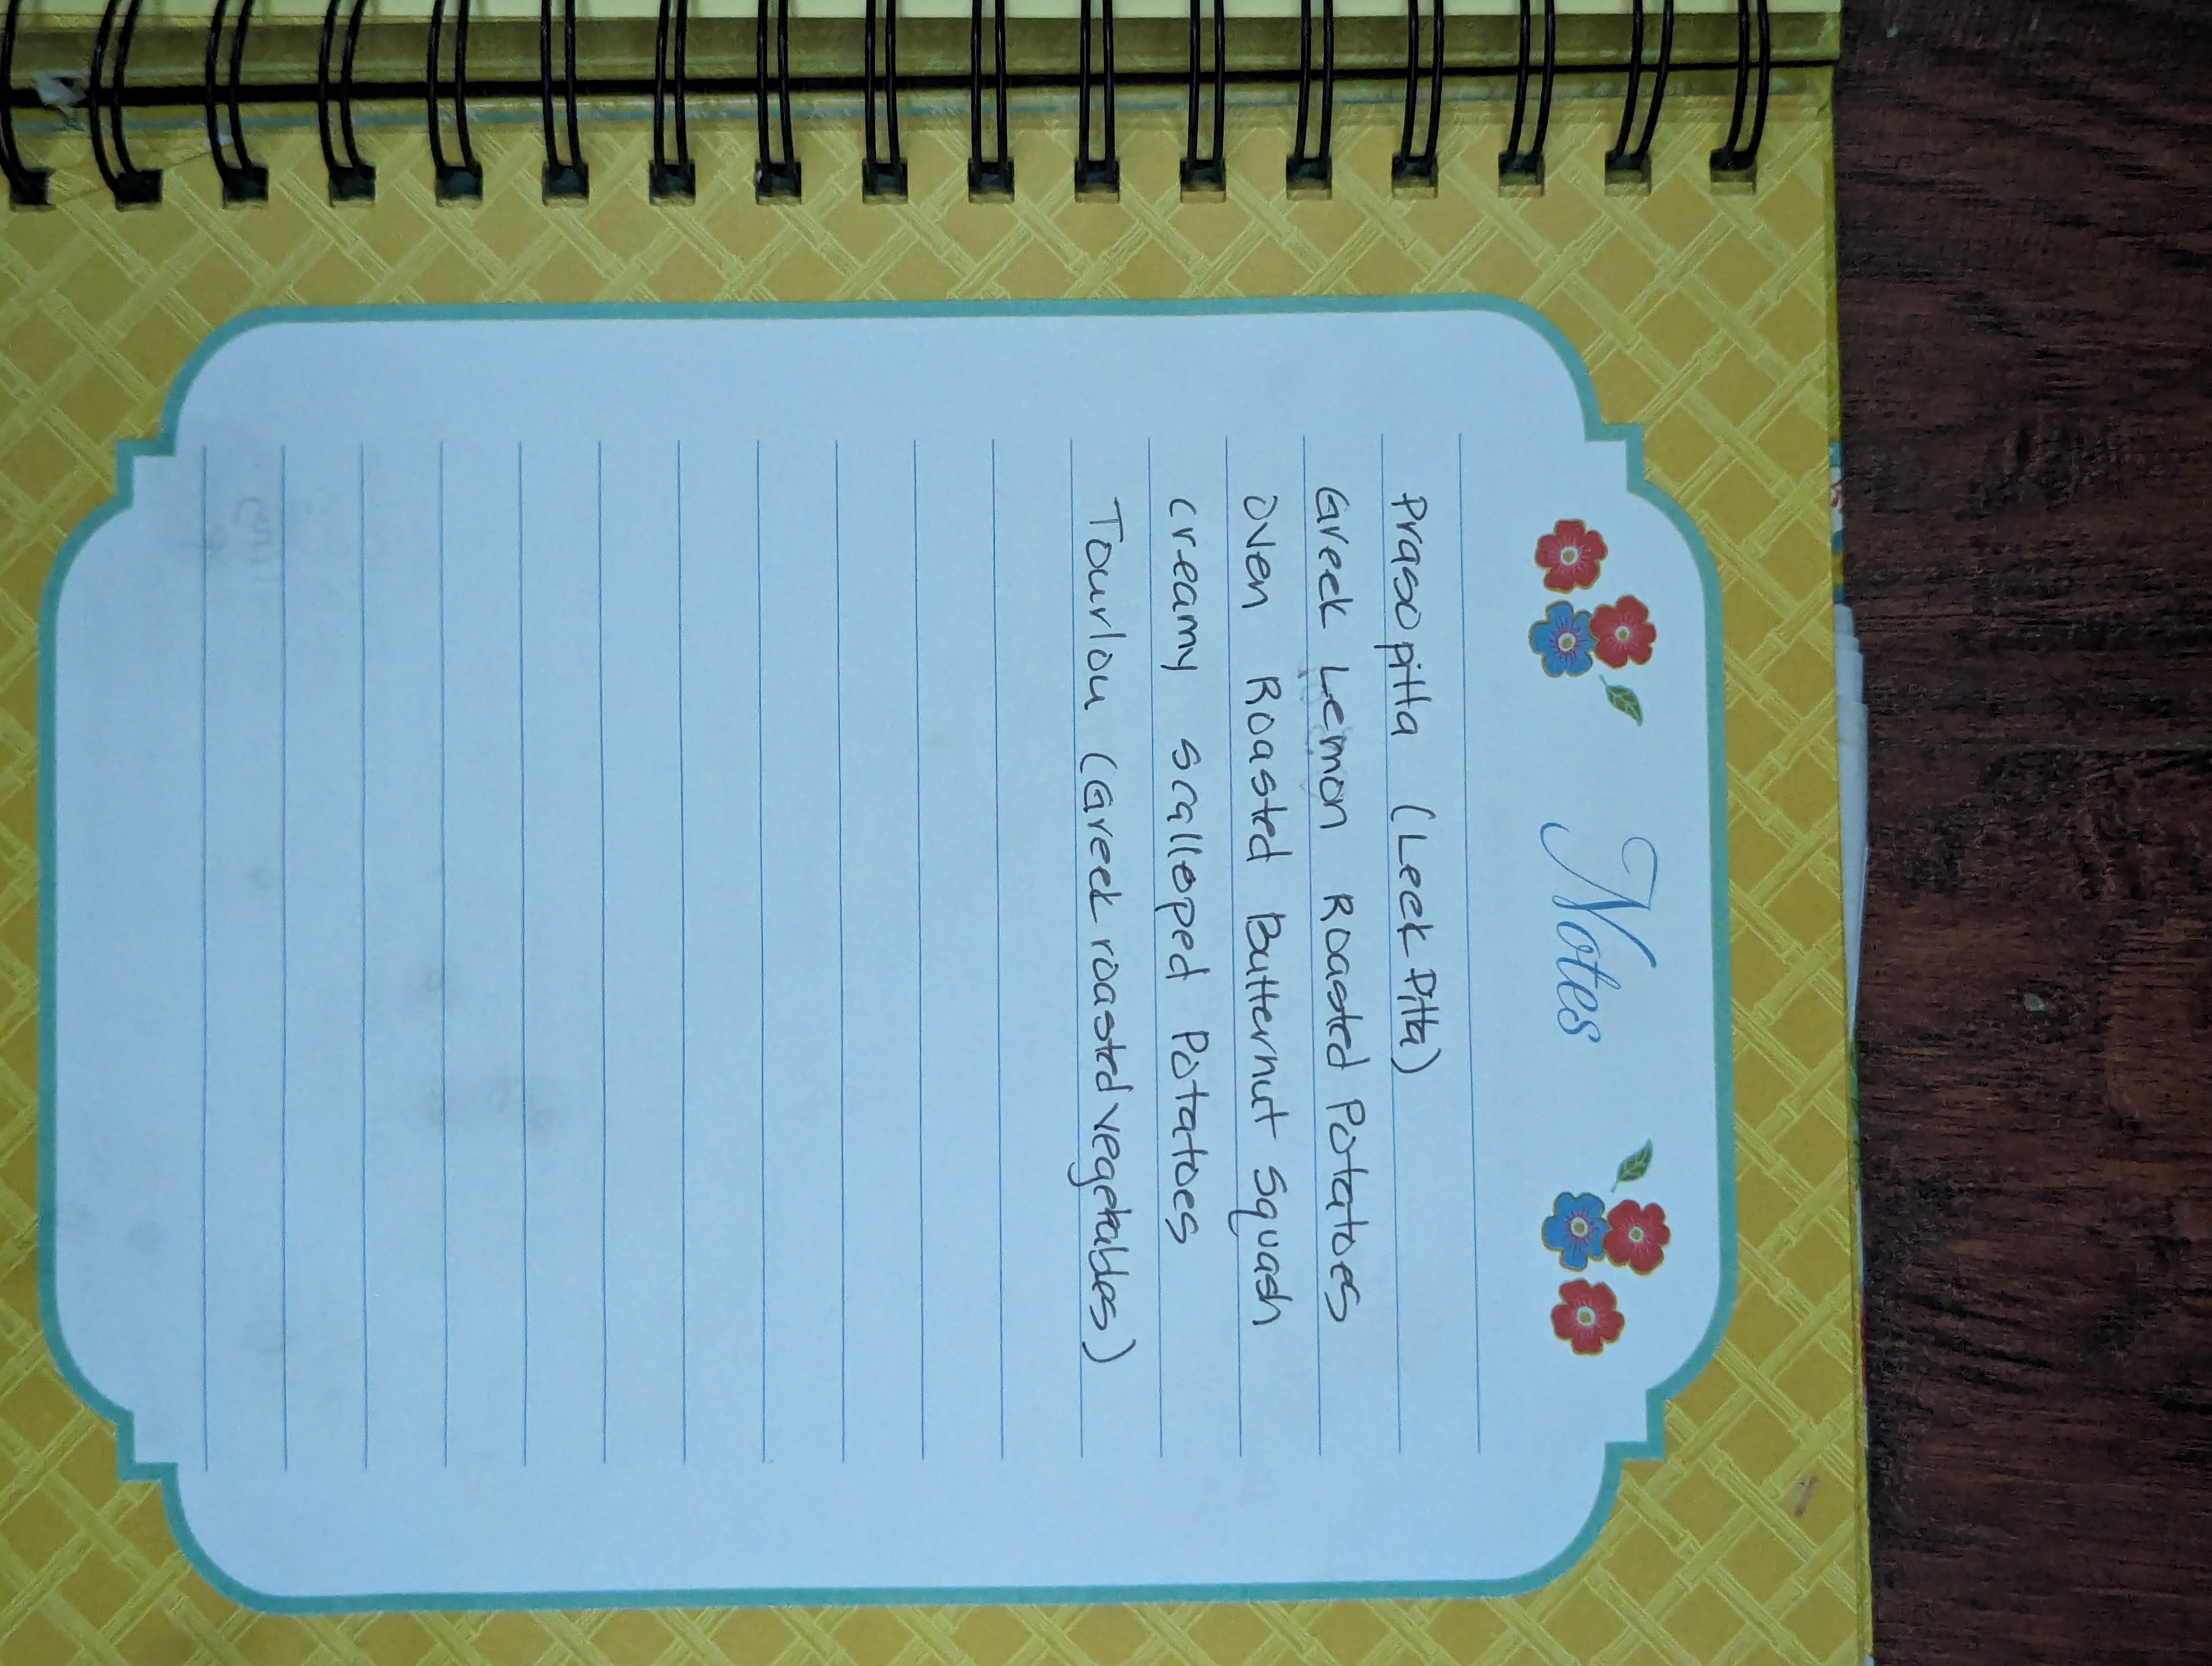 Notes
Prasopitta (Leek Pitta)
Greek Lemon Roasted Potatoes
Oven Roasted Butternut Squash
Creamy scalloped Potatoes
Tourlou (Greek roasted vegetables)